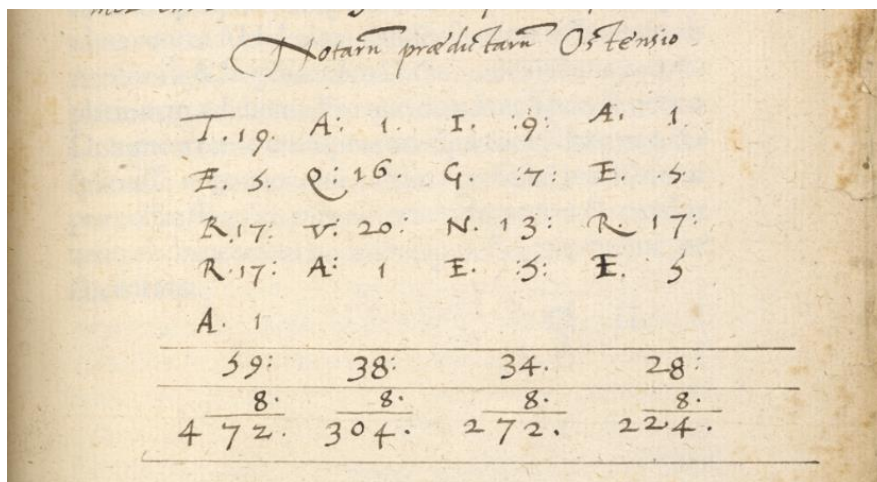 Notarũ prædictarũ Ostensio
T. 19. A: 1. I. :9: A. 1
E. 5. Q: 16. G. :7: E. 5.
R. 17: V: 20: N. 13: R 17:
R. 17: A: 1 E. :5: E. 5
A. 1
59: 38: 34. 28:
8. 8. 8. 8.
472. 304. 272. 224.